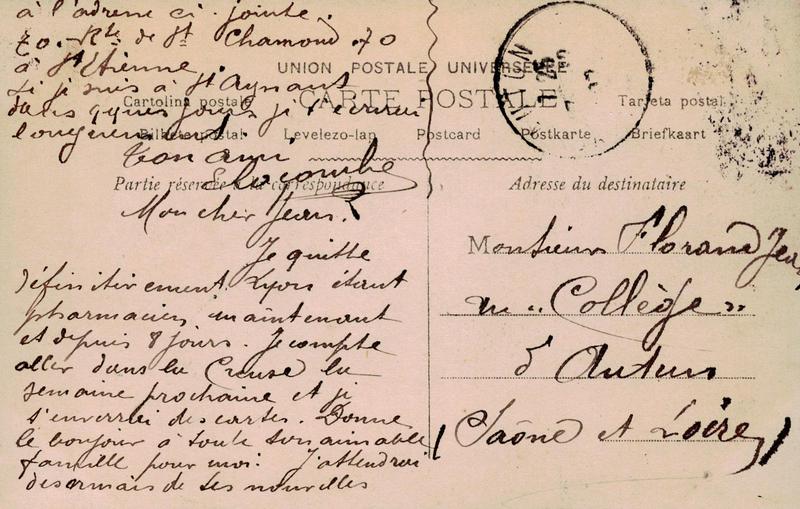 à l'adresse ci-jointe.
70. Rte de St Chamond. 70
à St Etienne.
si je suis à St
dans qques jours je t'écrirai
longuement.
Ton ami
UNION POSTALE UNIVERSELLE
CARTE POSTALE
Cartolina postale
Tarjeta postal
Bilhete postal Levelezo-lap Postcard Postkarte Briefkaart
Partie réservée à la correspondance
Adresse du destinataire
Mon cher Jean.
Je quitte
définitivement Lyon étant
pharmacien maintenant
et depuis 8 jours. Je compte
aller dans la Creuse la
semaine prochaine et je
t'enverrai des cartes. Donne
le bonjour à toute ton aimable
famille pour moi. J'attendrai
desormais de tes nouvelles
Monsieur Florand Jean
au "Collège"
d'Autun
(Saône et Loire)